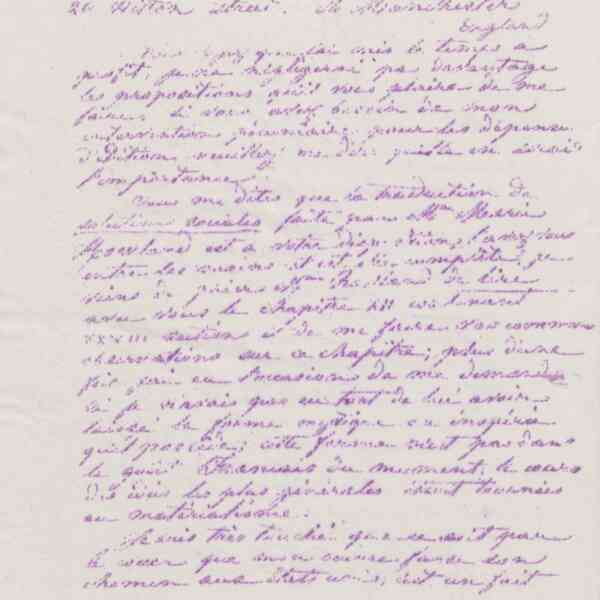 20 Street. Manchester
England
que j'ai mis le temps à
profit, je ne négligerai pas davantage
les propositions qu'il vous plaira de me
faire. Si vous avez besoin de mon
intervention pécuniaire pour les dépenses
d'édition veuillez me dire quelle en serait
l'importance.
Vous me dites que la traduction de
solutions sociales faite par Mme Marie
Howland est à votre disposition, l'avez vous
entre les mains et est elle complète, je
viens de prier Mme Howland de lire
avec vous le chapitre XII
XXVIII section et de me faire vos communes
observations sur ce chapitre; plus d'une
fois, j'ai eu l'occasion de me demander
si je n'avais pas eu tort de lui avoir
laissé la forme mystique ou inspirée
qu'il possède; cette forme n'est pas dans
le goût Français du moment, le cours
des idées les plus générales étant tournées
au matérialisme.
Je suis très touché que ce soit par
le cœur que mon œuvre fasse son
chemin aux États unis, c'est un fait